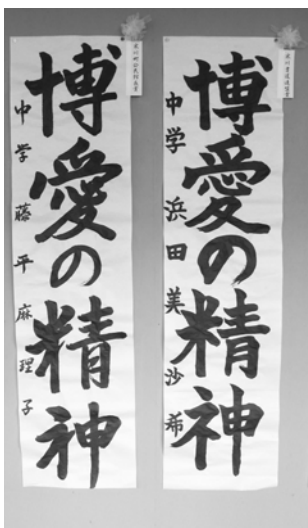 博愛の精神
中学 浜田美沙希
博愛の精神
中学 藤平麻理子